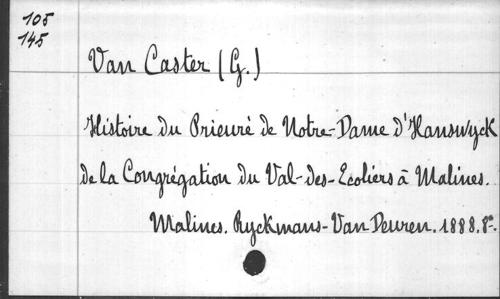 105
145
Van Caster (G.)
Histoire du Prieuré de Notre-Dame d'Hanswyck
de la Congrégation du Val-des-Ecoliers à Malines.
Malines. Ryckmans-Van Deuren. 1888. 8º.